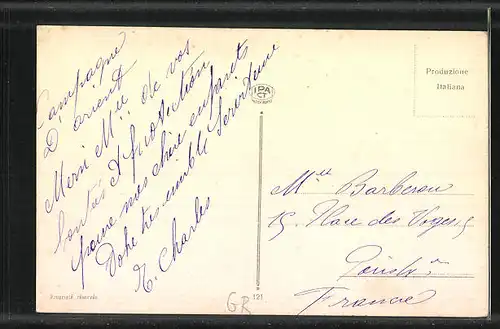 Campagne
D'orient
Merci Mlle de vos
bontés & protection
pour mes chers enfants
Votre très humble Serviteur
E. Charles
IPA
CT
Produzione
Italiana
Mlle Barberou
15. Place des Vosges
France
riservati
GR
121